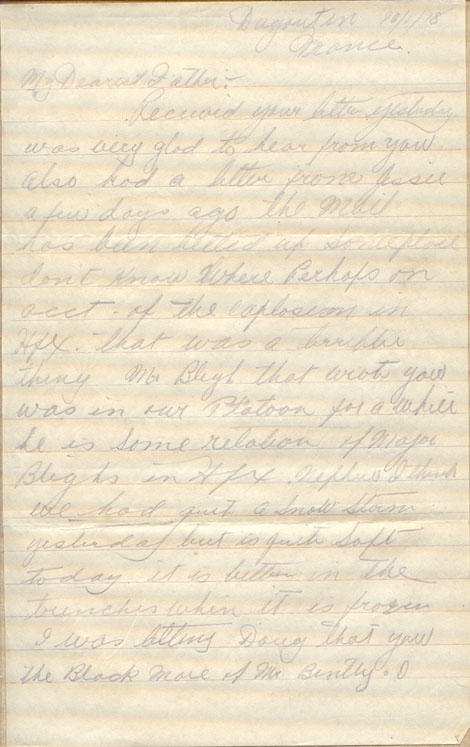 Dugout in 10/1/18
France.
My Dearest Father:-
Received your letter yesterday
was very glad to hear from you
also had a letter from Jssie
a few days ago the Mail
has been helled up someplace
dont Know Where Perhaps on
acct. of the explosion in
Hfx. that was a terrible
thing Mr Bligh that wrote you
was in our Platoon for a while
he is some relation of Major
Blighs in Hfx. Nephew I think
we had quit a Snow Storm
yesterday but is quite Soft
today it is better in the
trenches when it is frozen
I was telling Doug that you
the Black Mare of Mr. Bently. O